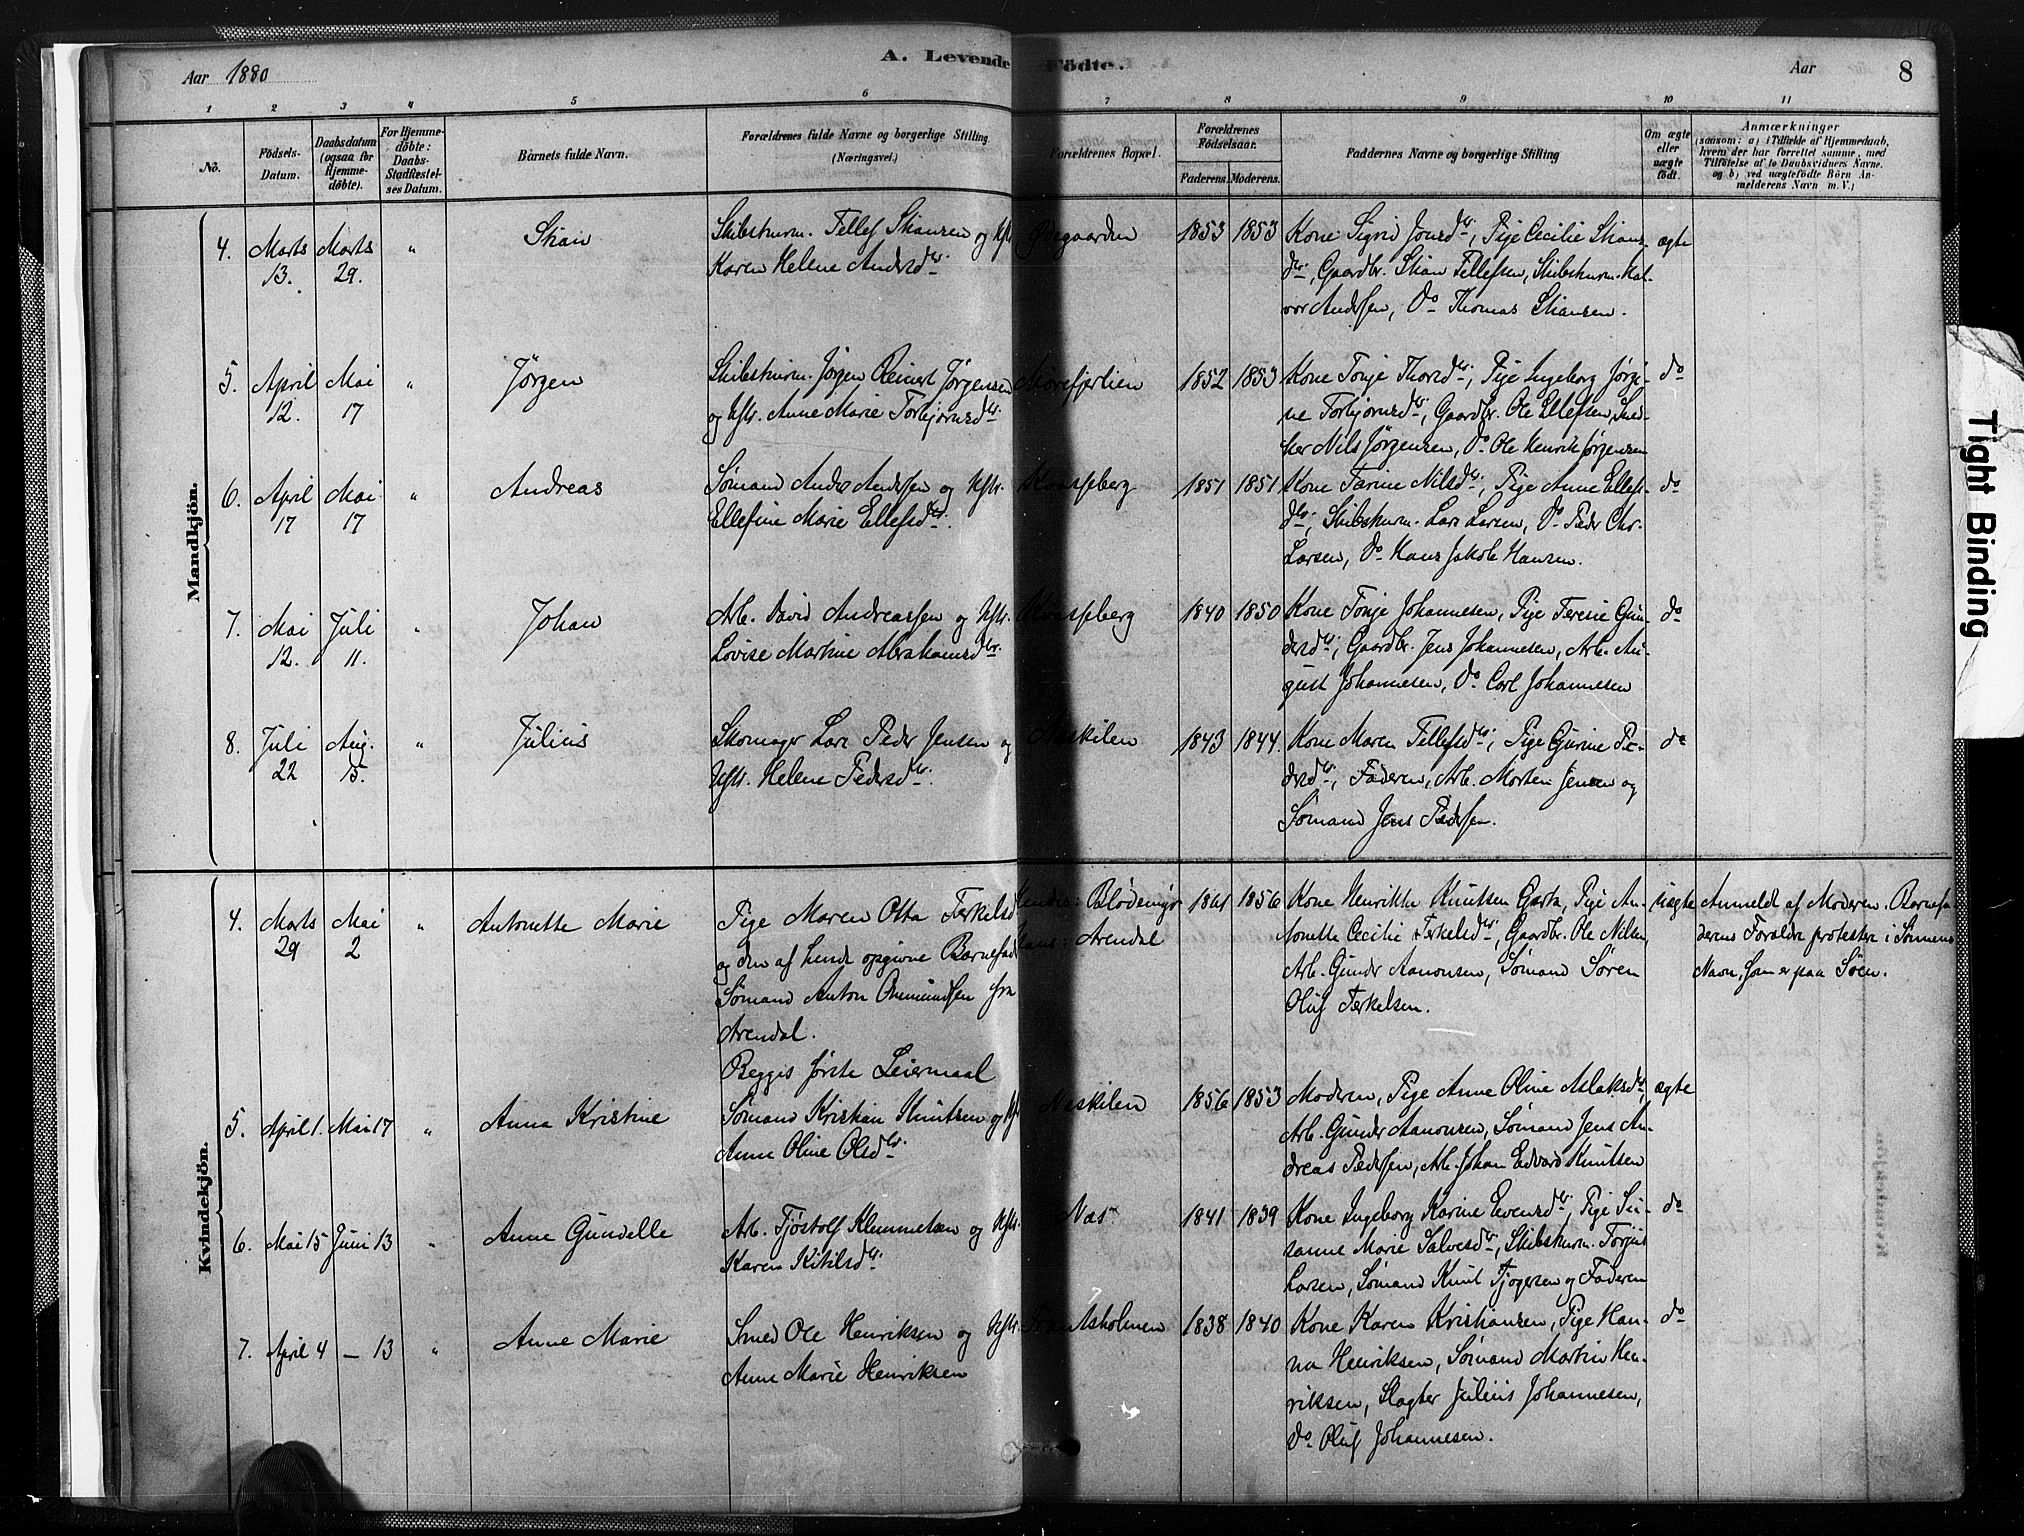 Aar 1880
A. Levende Födte.
Aar
8
1 2 3 4 5 6 7 8 9 10 11
No.
Födsels-Datum.
Daabsdatum (ogsaa for Hjemme-döbte).
For Hjemme-döbte: Daabs-Stadfæstel-ses Datum.
Barnets fulde Navn.
Forældrenes fulde Navne og borgerlige Stilling. (Næringsvei.)
Forældrenes Bopæl.
Forældrenes Födselsaar.
Faderens. Moderens.
Faddernes Navne og borgerlige Stilling
Om ægte eller uægte födt.
Anmærkninger
(saasom: a) i Tilfælde af Hjemmedaab,
hvem der har forrettet samme, med
Tilföielse af to Daabsvidners Navne.
og b) ved uægtefödte Börn An-
melderens Navn m. V.)
Mandkjön.
4. Marts 13. Marts 29. " Stian
Skibstmrm. Tellef Stiansen og Hstr.
Karen Helene Andersdtr.
Ødegaarden 1853 1853
Kone Sigrid Jonsdtr., Pige Cecilie Stians-
dtr., Gaardbr. Stian Tellefsen, Skibstmrm. Hal-
vor Andersen, Do Thomas Stiansen.
ægte
5. April 12. Mai 17 " Jørgen
Skibstmrm. Jørgen Reinert Jørgensen
og Hstr. Anne Marie Torbjørnsdtr.
Morefjerlien 1852 1853
Kone Tonje Thorsdtr., Pige Ingeborg Jørgi-
ne Torbjørnsdtr., Gaardbr. Ole Ellefsen, Sned-
ker Nils Jørgensen, Do Ole Henrik Jørgensen
do
6. April 17 Mai 17 " Andreas
Sømand Anders Andersen og Hstr.
Ellefine Marie Ellefsdtr.
Kvasseberg 1851 1851
Kone Tarine Nilsdtr., Pige Anne Ellefs-
dtr., Skibstmrm. Lars Larsen, Do Peder Chr.
Larsen, Do Hans Jakob Hansen.
do
7. Mai 12. Juli 11. " Johan
Arb. David Andreassen og Hstr.
Lovise Martine Abrahamsdtr.
Kvasseberg 1840 1850
Kone Tonje Johannesen, Pige Teresie Gun-
dersdtr., Gaardbr. Jens Johannesen, Arb. Au-
gust Johannesen, Do Carl Johannesen
do
8. Juli 22 Aug. 15. " Julius
Skomager Lars Peder Jensen og
Hstr. Helene Pedersdtr.
Neskilen 1843 1844
Kone Maren Tellefsdtr., Pige Gurine Pe-
dersdtr., Faderen, Arb. Morten Jensen og
Sømand Jens Pedersen.
do
Kvindekjön.
4. Marts 29 Mai 2 " Antonette Marie
Pige Maren Otta Terkelsd
og den af hende opgivne Barnefad
Sømand Anton Omundsen fra
Arendal.
Begges første Leiermaal
Hendes: Blødekjær
Hans: Arendal
1861 1856
Kone Henrikke Knutsen Garta, Pige An-
tonette Cecilie Terkelsdtr., Gaardbr. Ole Nilsen,
Arb. Gunder Aanonsen, Sømand Søren
Oluf Terkelsen.
uægte
Anmeldt af Moderen. Barnefa-
derens Forældre protesterer i Sønnens
Navn, som er paa Søen.
5. April 1. Mai 17 " Anna Kristine
Sømand Kristian Knutsen og Hstr
Anne Oline Olsdtr.
Neskilen 1856 1853
Moderen, Pige Anne Oline Aslaksdtr.,
Arb. Gunder Aanonsen, Sømand Jens An-
dreas Pedersen, Arb. Johan Edvard Knutsen
ægte
6. Mai 15 Juni 13 " Anne Gundelle
Arb. Tjøstolf Klemmetsen og Hstr.
Karen Kitilsdtr.
Næs 1841 1839
Kone Ingeborg Karine Evensdtr., Pige Su-
sanne Marie Salvesdtr., Skibstmrm. Torjus
Larsen, Sømand Knut Tjøgersen og Faderen
do
7. April 4 — 13 " Anne Marie
Smed Ole Henriksen og Hstr.
Anne Marie Henriksen
Frantsholmen 1838 1840
Kone Karen Kristiansen, Pige Han-
na Henriksen, Sømand Martin Hen-
riksen, Slagter Julius Johannesen,
Do Oluf Johannesen.
do
Tight Binding